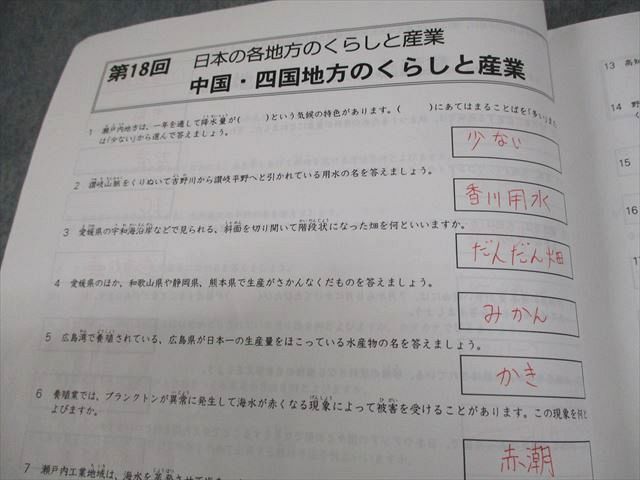 第18回 日本の各地方のくらしと産業
中国・四国地方のくらしと産業
1 瀬戸内地方は、一年を通して降水量が( )という気候の特色があります。( )にあてはまることばを「多い」また
は「少ない」から選んで答えましょう。
少ない
2 讃岐山脈をくりぬいて吉野川から讃岐平野へと引かれている用水の名を答えましょう。
香川用水
3 愛媛県の宇和海沿岸などで見られる、斜面を切り開いて階段状になった畑を何といいますか。
だんだん畑
4 愛媛県のほか、和歌山県や静岡県、熊本県で生産がさかんなくだものを答えましょう。
みかん
5 広島湾で養殖されている、広島県が日本一の生産量をほこっている水産物の名を答えましょう。
かき
6 養殖業では、プランクトンが異常に発生して海水が赤くなる現象によって被害を受けることがあります。この現象を何と
よびますか。
赤潮
7 瀬戸内工業地域は、海水を蒸発させて
13 高知
14 野
15
16
17